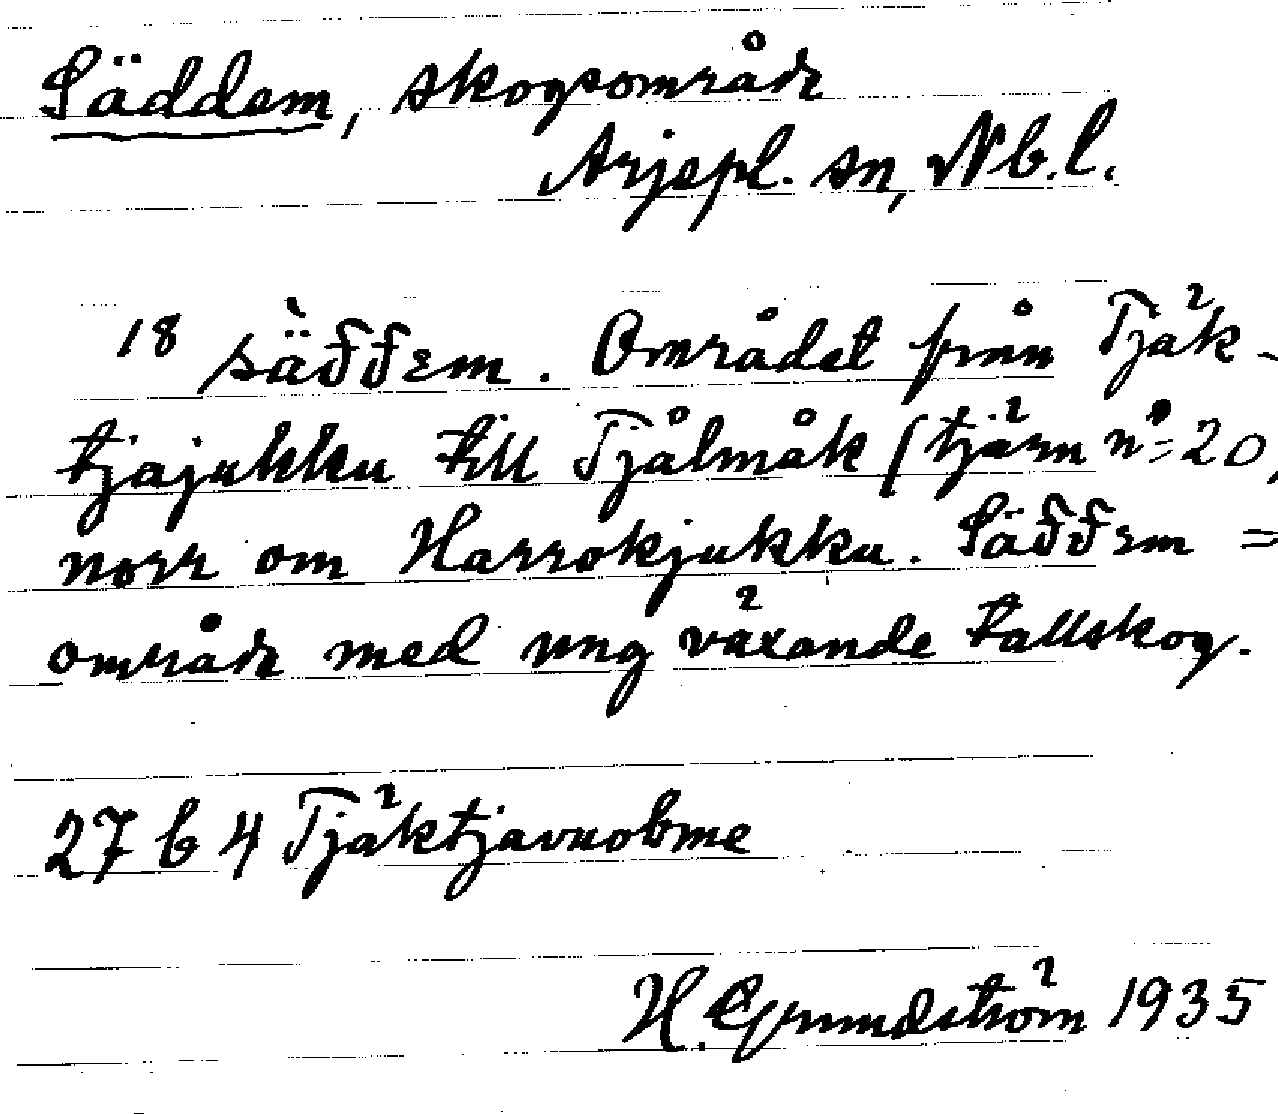 Säddem, skogsområde
Arjepl. sn, Nb.l.
18 sä̀đđem. Området från Tjäk-
tjajukku till Tjålmåk (tjärn nº 20,
norr om Harrokjukku. Säđđem =
område med ung växande tallskog.
27 b 4 Tjäktjavuobme
H. Grundström 1935